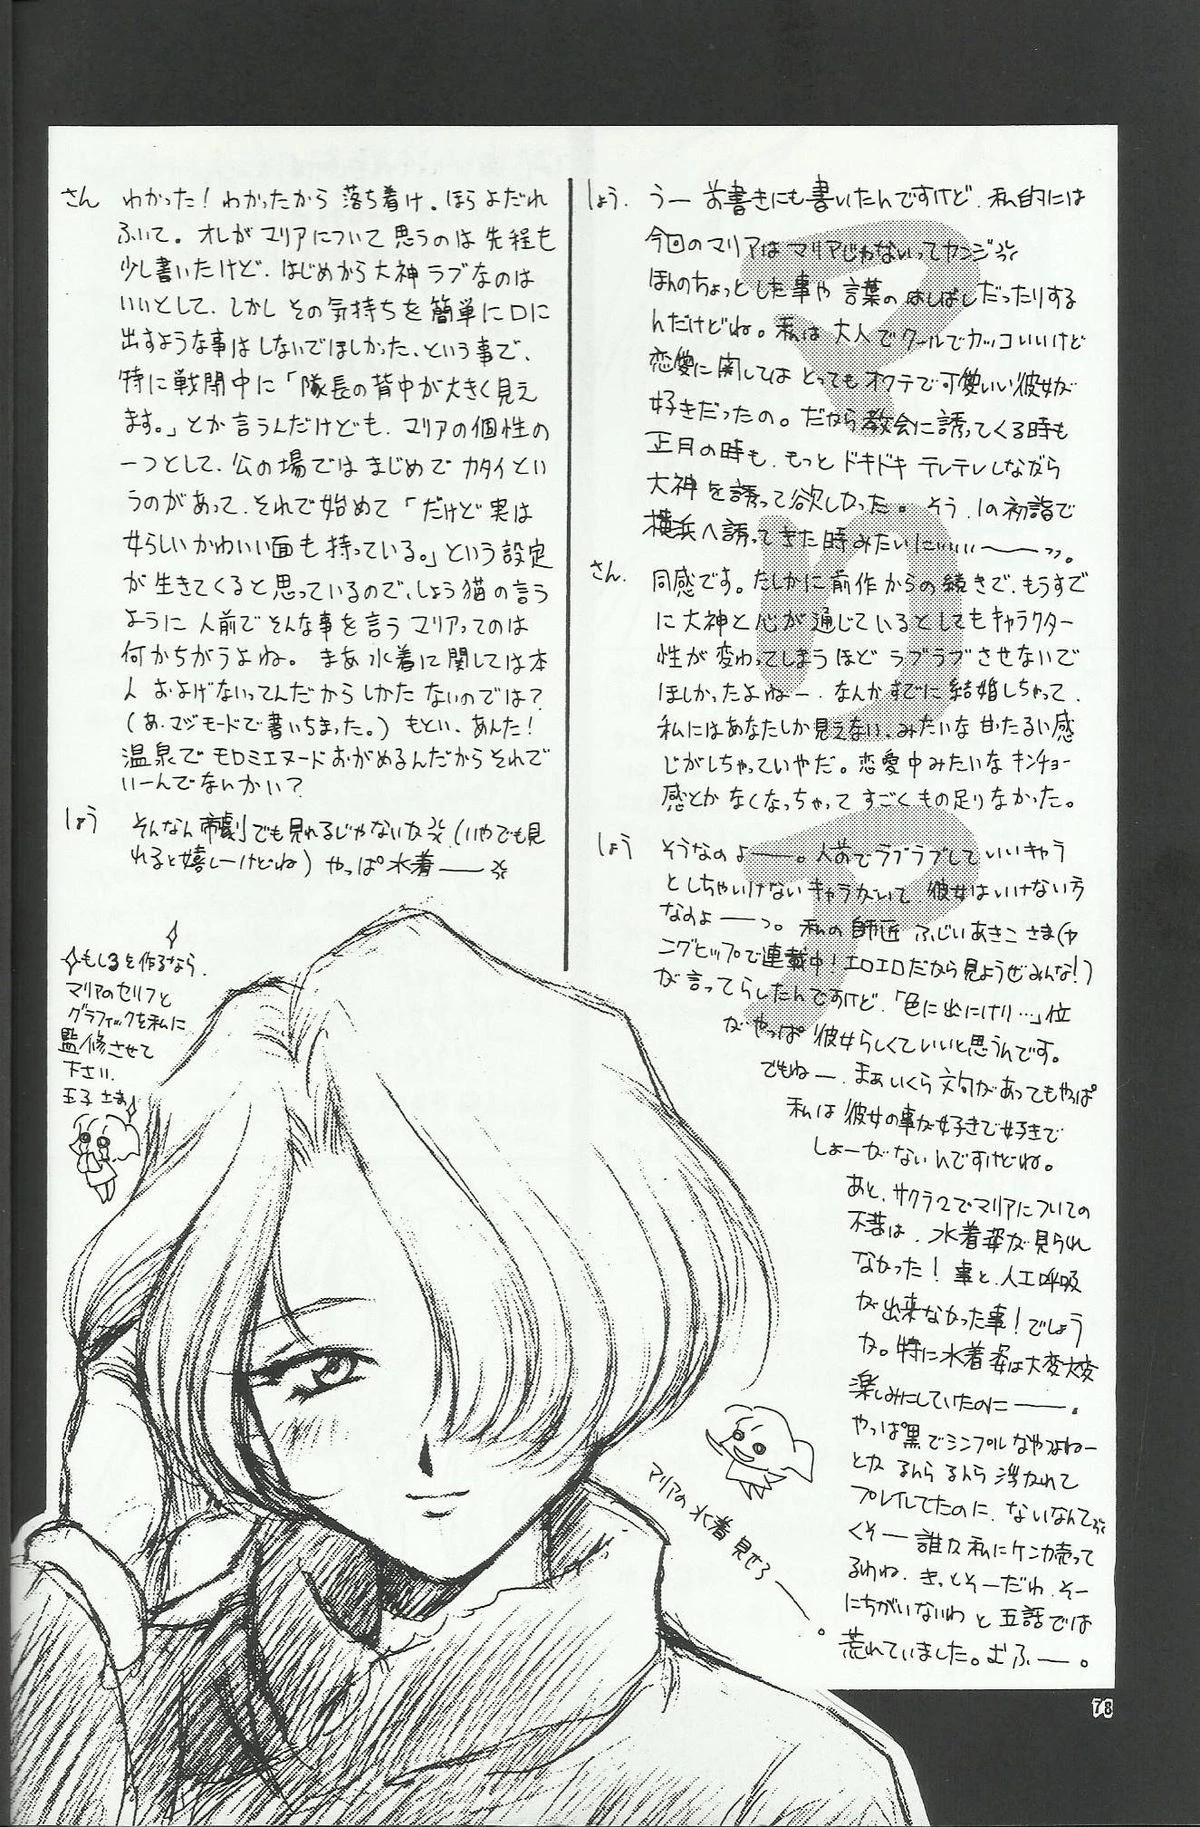 しょう. うー お書きにも書いたんですけど、私的には
今回のマリアはマリアじゃないってカンジ
ほんのちょっとした事や 言葉のはしばしだったりする
んだけどね。私は大人でクールでカッコいいけど
恋愛に関してはとってもオクテで可愛いい彼女が
好きだったの。だから教会に誘ってくる時も
正月の時も、もっとドキドキ テレテレしながら
大神を誘って欲しかった。そう、1の初詣で
横浜へ誘ってきた時みたいにぃぃぃ――っっ。
さん. 同感です。たしかに前作からの続きで、もうすで
に大神と心が通じているとしてもキャラクター
性が変わってしまうほどラブラブさせないで
ほしかったよねー、なんかすでに結婚しちゃって、
私にはあなたしか見えない、みたいな甘ったるい感
じがしちゃっていやだ。恋愛中みたいなキンチョー
感とかなくなっちゃってすごくもの足りなかった。
しょう そうなのよ――。人前でラブラブしていいキャラ
としちゃいけないキャラがいて 彼女はいけない方
なのよ――っ。私の師匠 ふじいあきこさま(ヤ
ングヒップで連載中!エロエロだから見ようぜみんな!)
が言ってらしたんですけど、「色に出にけり…」位
がやっぱ彼女らしくていいと思うんです。
でもねー、まぁいくら文句があってもやっぱ
私は彼女の事が好きで好きで
しょーがないんですけどね。
あと、サクラ2でマリアについての
不満は、水着姿が見られ
なかった!事と、人工呼吸
が出来なかった事!でしょう
か。特に水着姿は大変大変
楽しみにしていたのに――。
やっぱ黒でシンプルなやつよねー
とか るんらるんら 浮かれて
プレイしてたのに、ないなんて
くそー 誰か私にケンカ売って
るわね、きっとそーだわ、そー
にちがいないわと五話では
荒れていました。むふー。
さん わかった!わかったから落ち着け。ほらよだれ
ふいて。オレがマリアについて思うのは先程も
少し書いたけど、はじめから大神ラブなのは
いいとして、しかしその気持ちを簡単に口に
出すような事はしないでほしかった、という事で、
特に戦闘中に「隊長の背中が大きく見え
ます。」とか言うんだけども、マリアの個性の
一つとして、公の場ではまじめでカタイとい
うのがあって、それで始めて「だけど実は
女らしいかわいい面も持っている。」という設定
が生きてくると思っているので、しょう猫の言う
ように人前でそんな事を言うマリアってのは
何かちがうよね。まあ水着に関しては本
人およげないってんだからしかたないのでは?
(あ、マジモードで書いちまった。)もとい、あんた!
温泉でモロミエヌードおがめるんだからそれで
いーんでないかい?
しょう そんなん帝劇でも見れるじゃないか(いやでも見
れると嬉しーけどね)やっぱ水着――
もし3を作るなら、
マリアのセリフと
グラフィックを私に
監修させて
下さい、
王子さま
マリアの水着見せろ――。
78